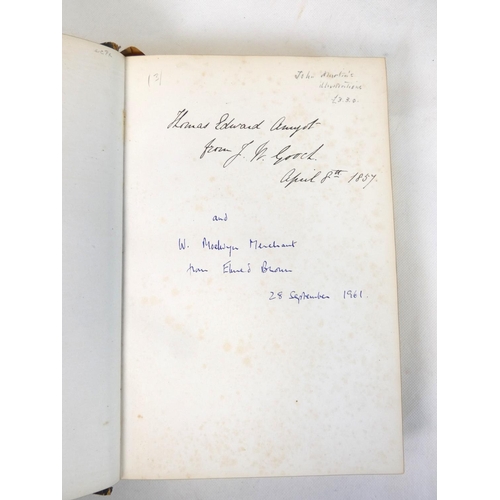 John Martin's
illustrations
Thomas Edward Amyot
from J. W. Gooch
April 8th 1857.
and
W. Moelwyn Merchant
from
28 September 1961.